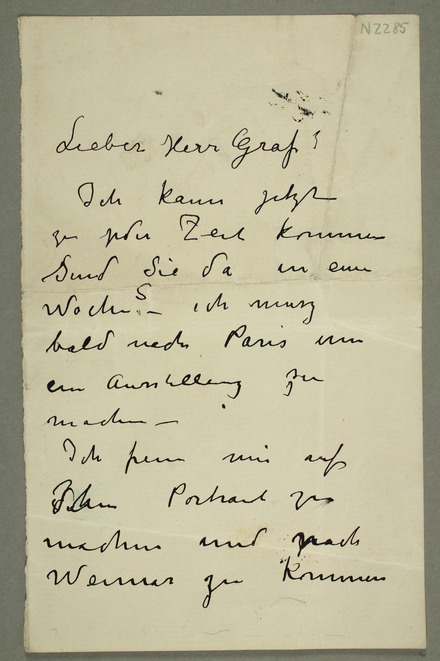 N2285
Lieber Herr Graf!
Ich kann jetzt
zu jeder Zeit kommen
Sind Sie da in eine
Woche? – ich musz
bald nach Paris um
ein Ausstellung zu
machen –
Ich freue mir auf
Ihren Portrait zu
machen und nach
Weimar zu kommen